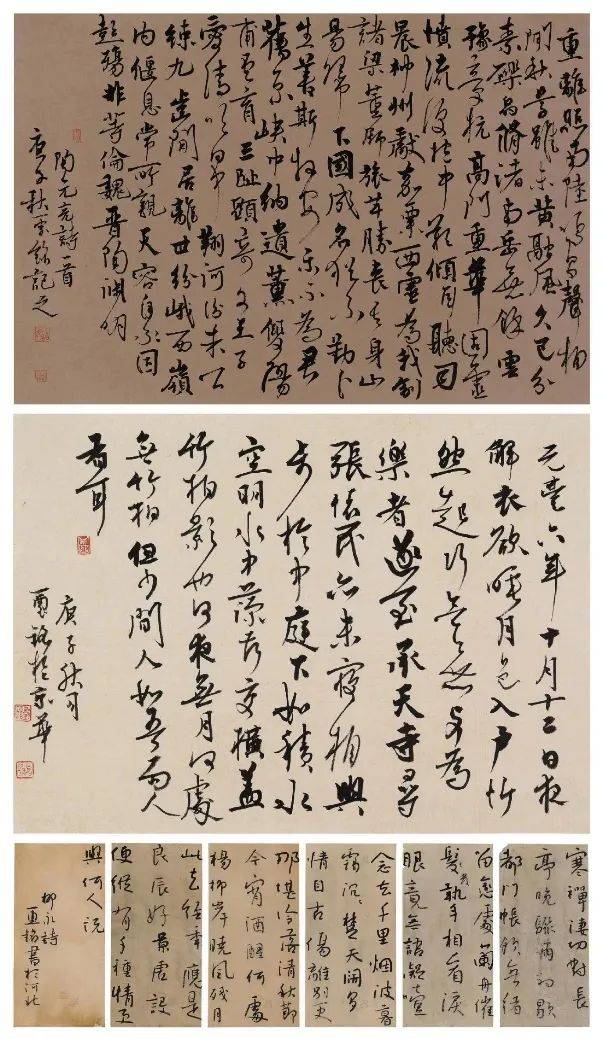 重離照南陸鳴鳥聲相
聞秋草雖未黃融風久已分
素礫皛脩渚南岳無餘雲
豫章抗高門重華固靈
墳流淚抱中歎傾耳聽司
晨神州獻嘉粟西靈為我馴
諸梁董師旅芊勝喪其身山
陽歸下國成名猶不勤卜
生善斯牧安樂不為君
舊京峽中納遺薰雙陽
甫云育三趾顯奇文王子
愛清吹日中翔河汾朱公
練九齒閒居離世紛峨西嶺
內偃息常所親天容自永固
彭殤非等倫魏晉陶淵明
陶元亮詩一首
庚子秋記之
元豐六年十月十二日夜
解衣欲睡月色入戶忻
然起行念無與為
樂者遂至承天寺尋
張懷民亦未寢相與
步於中庭庭下如積水
空明水中藻荇交橫蓋
竹柏影也何夜無月何處
無竹柏但少閒人如吾兩人
者耳
庚子秋月
於京華
寒蟬淒切對長
亭晚驟雨初歇
都門帳飲無緒
留戀處蘭舟催
發執手相看淚
眼竟無語凝噎
念去千里烟波暮
靄沉沉楚天闊多
情自古傷離別更
那堪冷落清秋節
今宵酒醒何處
楊柳岸曉風殘月
此去經年應是
良辰好景虛設
便縱有千種情更
與何人說
柳永詩
書於河北